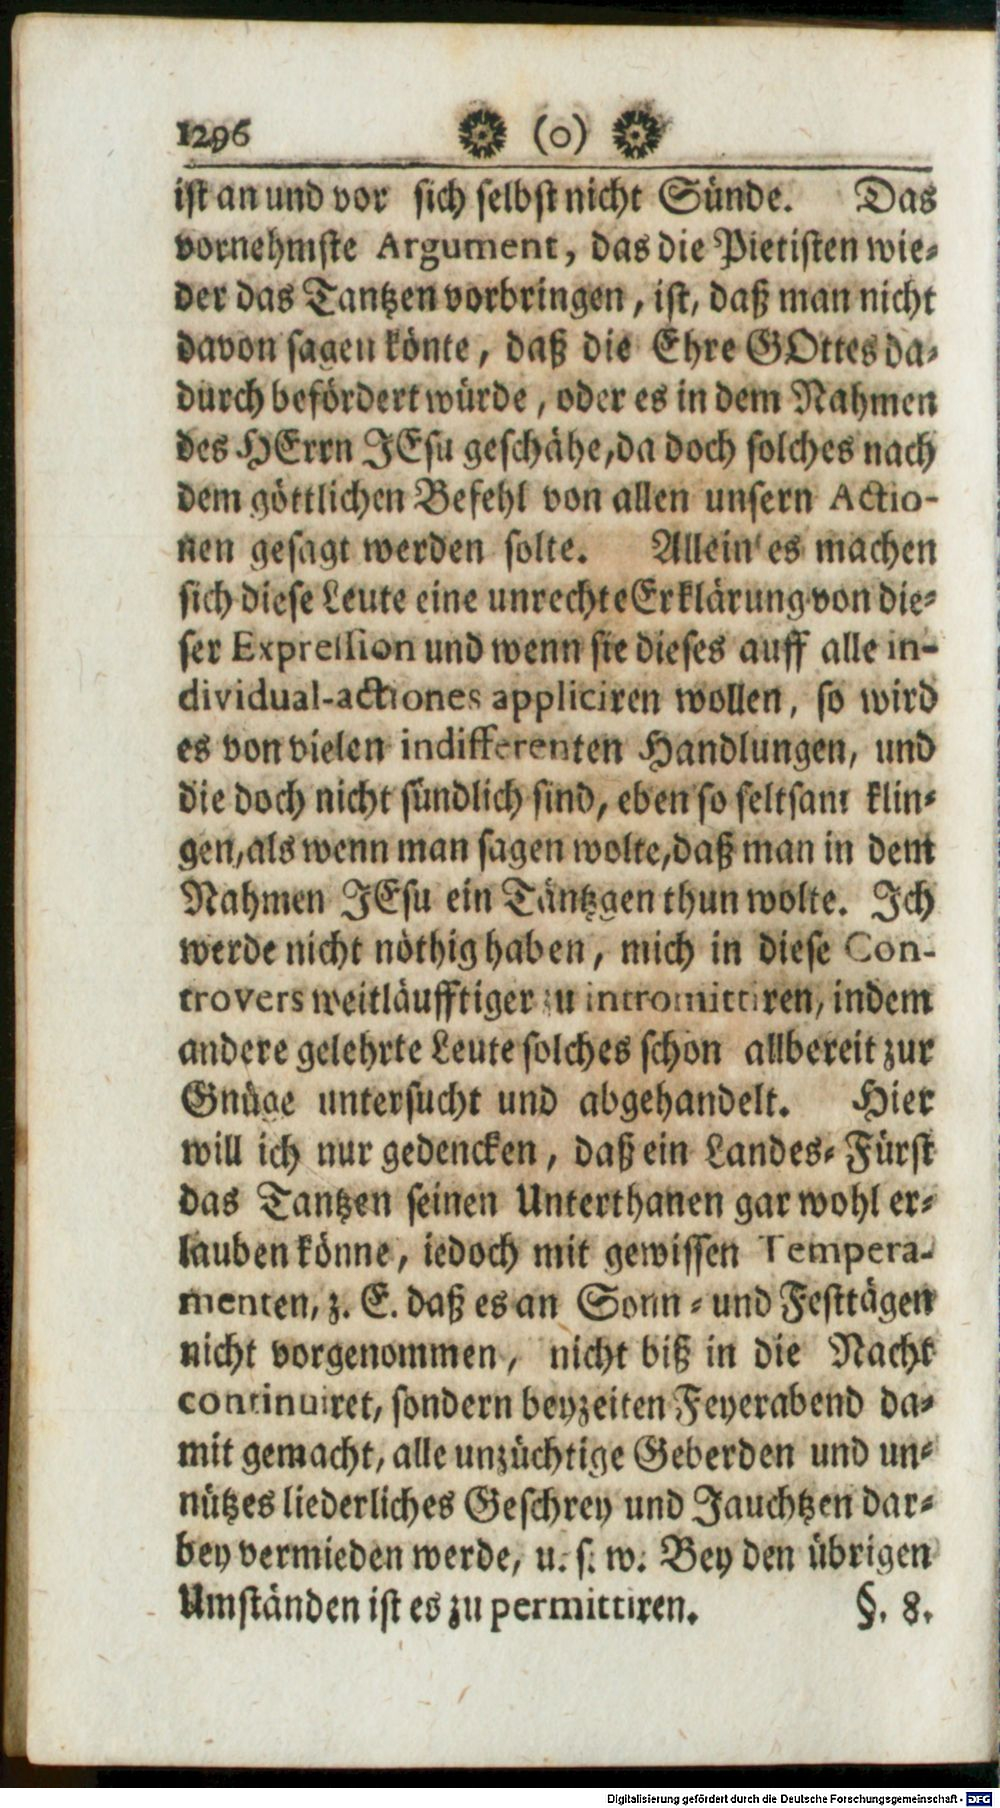 1296 (o)
ist an und vor sich selbst nicht Sünde. Das
vornehmste Argument, das die Pietisten wie-
der das Tantzen vorbringen, ist, daß man nicht
davon sagen könte, daß die Ehre GOttes da-
durch befördert würde, oder es in dem Nahmen
des HErrn JEsu geschähe, da doch solches nach
dem göttlichen Befehl von allen unsern Actio-
nen gesagt werden solte. Allein es machen
sich diese Leute eine unrechte Erklärung von die-
ser Expression und wenn sie dieses auff alle in-
dividual-actiones appliciren wollen, so wird
es von vielen indifferenten Handlungen, und
die doch nicht sündlich sind, eben so seltsam klin-
gen, als wenn man sagen wolte, daß man in dem
Nahmen JEsu ein Täntzgen thun wolte. Ich
werde nicht nöthig haben, mich in diese Con-
trovers weitläufftiger zu intromittiren, indem
andere gelehrte Leute solches schon allbereit zur
Gnüge untersucht und abgehandelt. Hier
will ich nur gedencken, daß ein Landes-Fürst
das Tantzen seinen Unterthanen gar wohl er-
lauben könne, iedoch mit gewissen Tempera-
menten, z. E. daß es an Sonn- und Festtägen
nicht vorgenommen, nicht biß in die Nacht
continuiret, sondern beyzeiten Feyerabend da-
mit gemacht, alle unzüchtige Geberden und un-
nützes liederliches Geschrey und Jauchtzen dar-
bey vermieden werde, u. s. w. Bey den übrigen
Umständen ist es zu permittiren. §. 8.
Digitalisierung gefördert durch die Deutsche Forschungsgemeinschaft - DFG